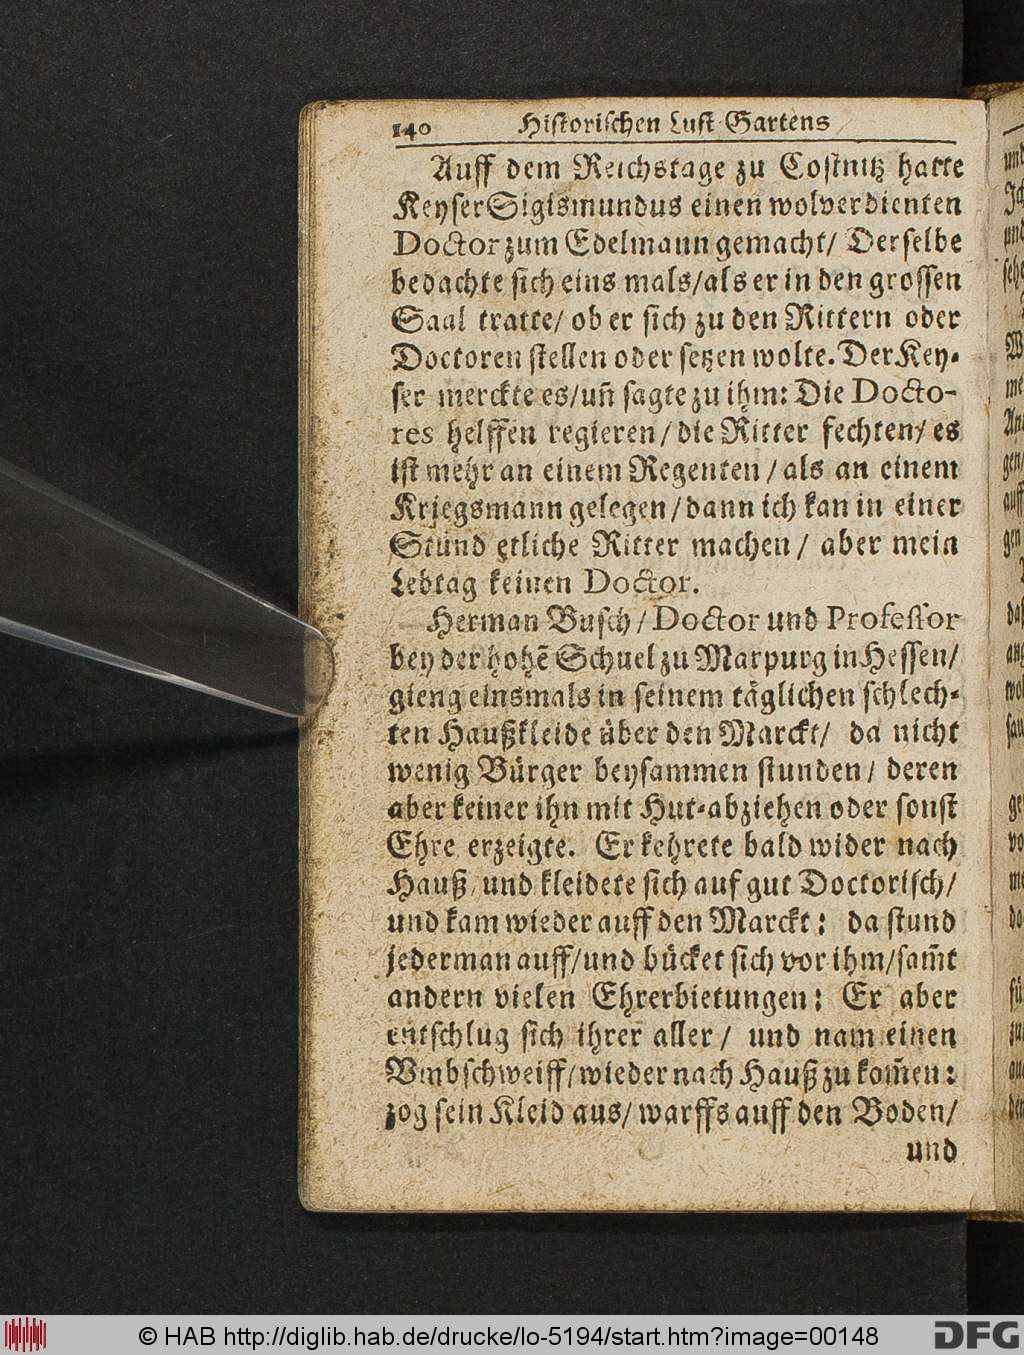 140 Historischen Lust-Gartens
Auff dem Reichstage zu Costnitz hatte
Keyser Sigismundus einen wolverdienten
Doctor zum Edelmann gemacht/ Derselbe
bedachte sich eins mals/als er in den grossen
Saal tratte/ ob er sich zu den Rittern oder
Doctoren stellen oder setzen wolte. Der Key-
ser merckte es/uñ sagte zu ihm: Die Docto-
res helffen regieren/die Ritter fechten/es
ist mehr an einem Regenten/als an einem
Kriegsmann gelegen/dann ich kan in einer
Stund etliche Ritter machen/ aber mein
Lebtag keinen Doctor.
Herman Busch/Doctor und Professor
bey der hohẽ Schuel zu Marpurg in Hessen/
gieng einsmals in seinem täglichen schlech-
ten Haußkleide über den Marckt/ da nicht
wenig Bürger beysammen stunden/ deren
aber keiner ihn mit Hut-abziehen oder sonst
Ehre erzeigte. Er kehrete bald wider nach
Hauß/und kleidete sich auf gut Doctorisch/
und kam wieder auff den Marckt: da stund
jederman auff/und bücket sich vor ihm/sam̃t
andern vielen Ehrerbietungen: Er aber
entschlug sich ihrer aller/ und nam einen
Umbschweiff/wieder nach Hauß zu kom̃en:
zog sein Kleid aus/warffs auff den Boden/
und
© HAB http://diglib.hab.de/drucke/lo-5194/start.htm?image=00148
DFG